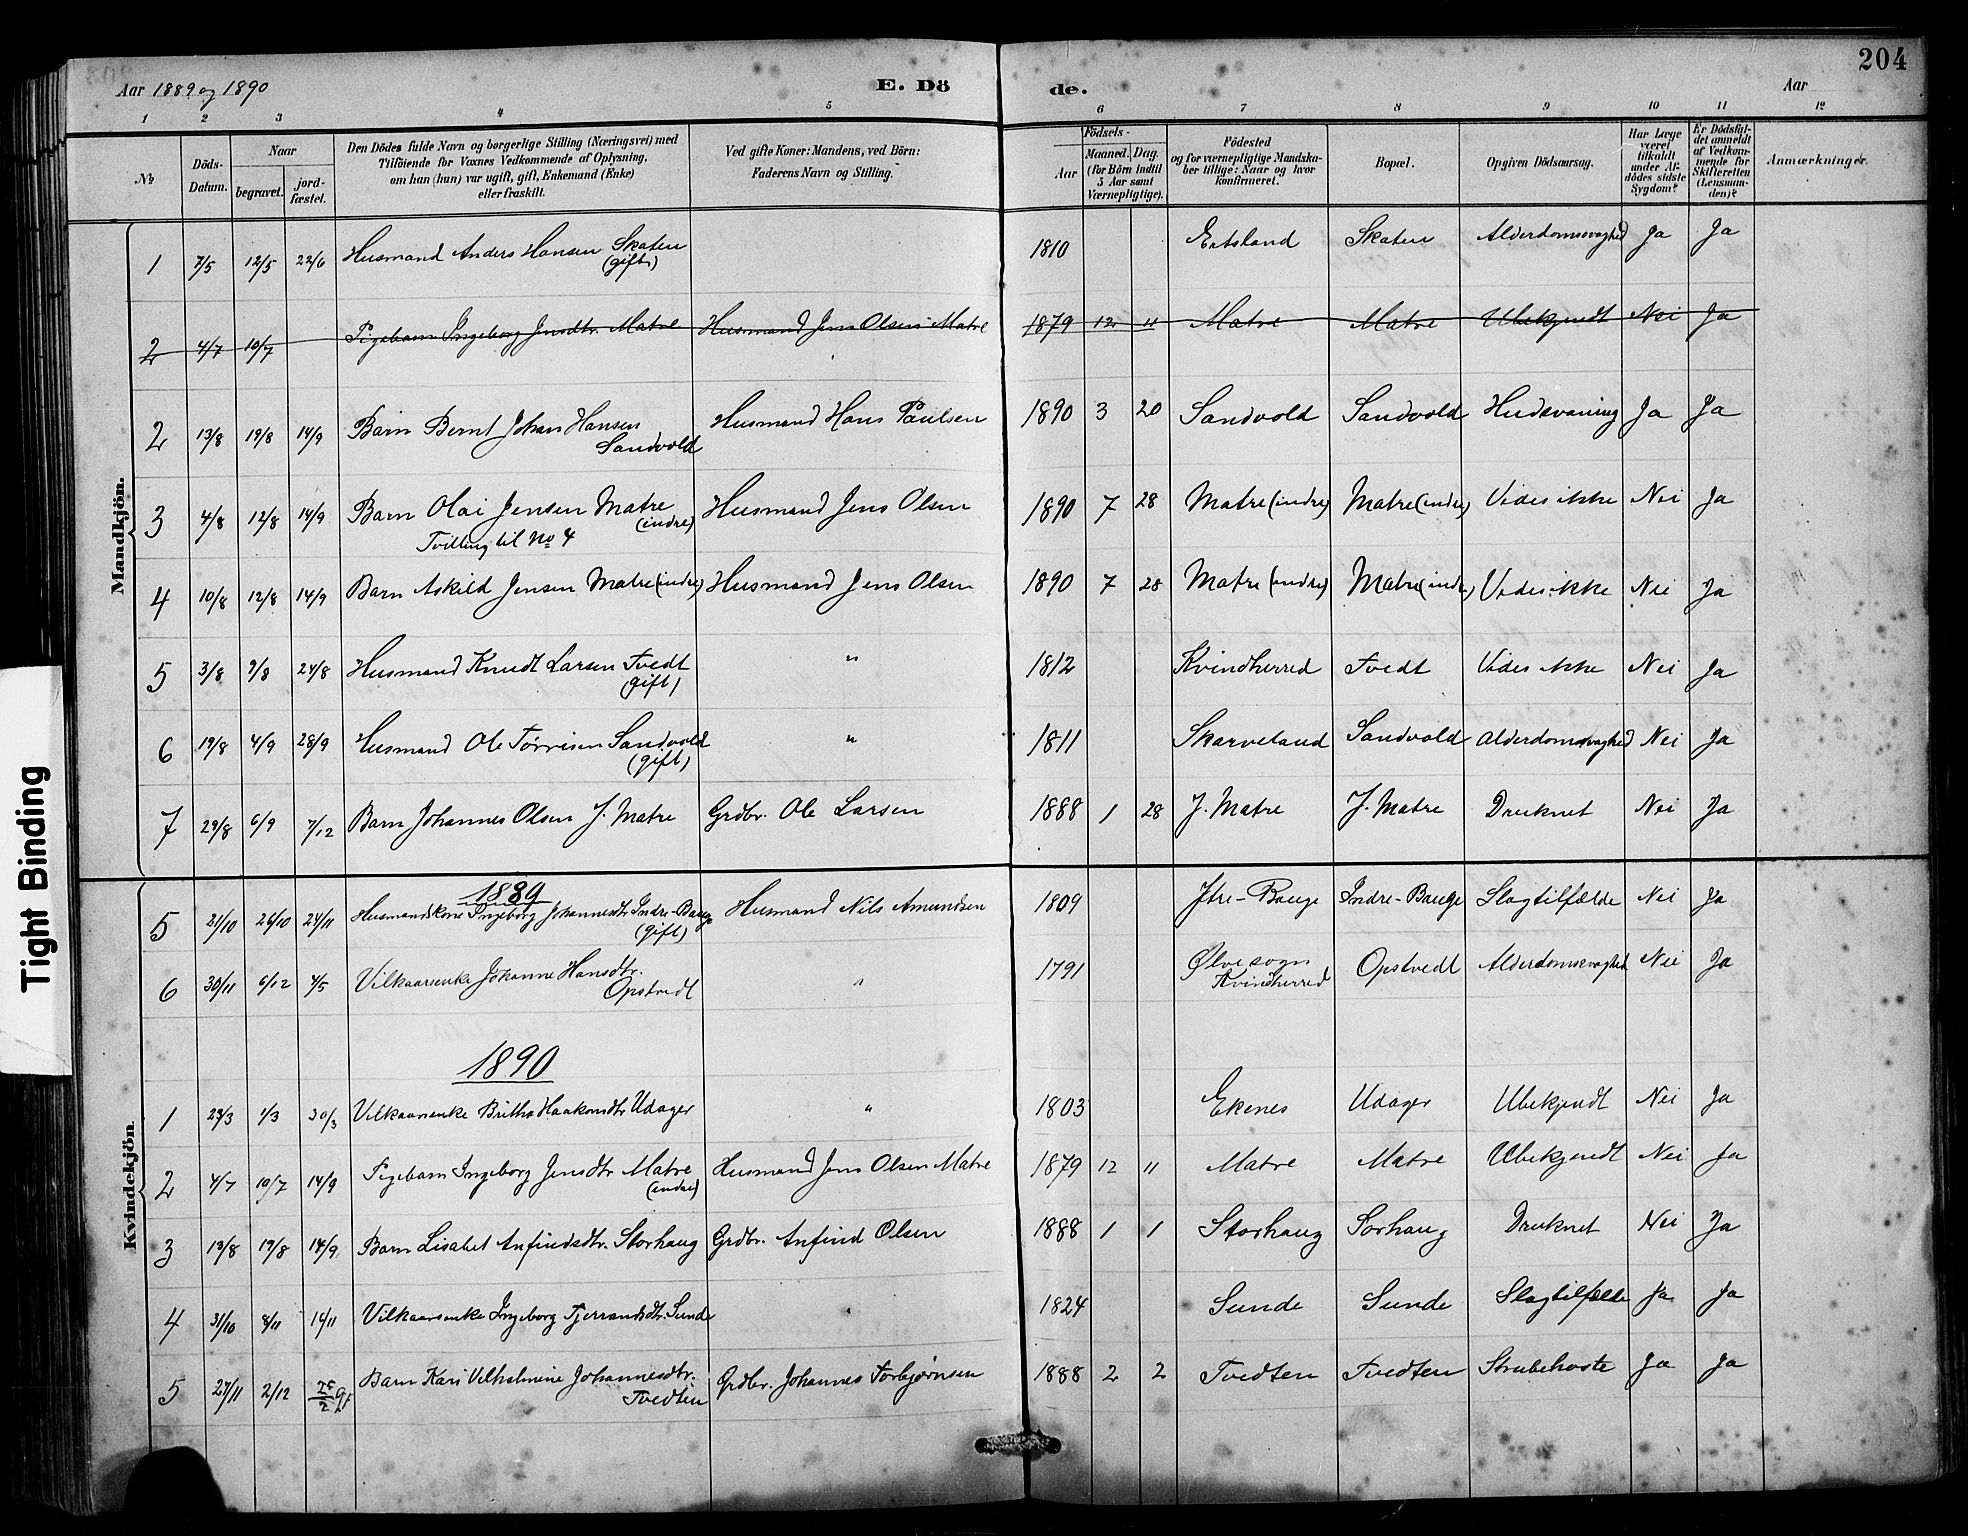 204
Aar 1889 og 1890 E. Dö de. Aar
1 2 3 4 5 6 7 8 9 10 11 12
No
Döds-Datum.
Naar
begravet. jordfæstet.
Den Dödes fulde Navn og borgerlige Stilling (Næringsvei) med
Tilföiende for Voxnes Vedkommende af Oplysning,
om han (hun) var ugift, gift, Enkemand (Enke)
eller fraskilt.
Ved gifte Koner: Mandens, ved Börn:
Faderens Navn og Stilling.
Födsels-
Aar Maaned. Dag.
(for Börn indtil
5 Aar samt
Værnepligtige).
Födested
og for værnepligtige Mandska-
ber tillige: Naar og hvor
konfirmeret.
Bopæl.
Opgiven Dödsaarsag.
Har Læge
været
tilkaldt
under Af-
dödes sidste
Sygdom?
Er Dödsfal-
det anmeldt
af Vedkom-
mende for
Skifteretten
(Lensman-
den)?
Anmærkninger.
Mandkjön.
1 7/5 12/5 22/6 Husmand Anders Hansen Skaten (gift) 1810 Skaten Alderdomssvaghed Ja Ja
2 4/7 10/7 Pigebarn Ingeborg Jensdtr. Matre Husmand Jens Olsen Matre 1879 12 11 Matre Matre Ubekjendt Nei Ja
2 13/8 19/8 14/9 Barn Bernt Johan Hansen Sandvold Husmand Hans Paulsen 1890 3 20 Sandvold Sandvold Ja Ja
3 4/8 12/8 14/9 Barn Olai Jensen Matre (indre) Husmand Jens Olsen 1890 7 28 Matre (indre) Matre (indre) Vides ikke Nei Ja
Tvilling til No 4
4 10/8 12/8 14/9 Barn Askild Jensen Matre (indre) Husmand Jens Olsen 1890 7 28 Matre (indre) Matre (indre) Vides ikke Nei Ja
5 3/8 9/8 24/8 Husmand Knudt Larsen Tvedt (gift) " 1812 Kvindherred Tvedt Vides ikke Nei Ja
6 19/8 4/9 28/9 Husmand Ole Tørrisen Sandvold (gift) " 1811 Skarveland Sandvold Alderdomssvaghed Nei Ja
7 29/8 6/9 7/12 Barn Johannes Olsen J. Matre Grdbr. Ole Larsen 1888 1 28 J. Matre J. Matre Druknet Nei Ja
Kvindekjön
1889
5 21/10 26/10 24/11 Husmandskone Ingeborg Johannesdtr Indre-Bauge (gift) Husmand Nils Amundsen 1809 Ytre-Bauge Indre-Bauge Slagtilfælde Nei Ja
6 30/11 6/12 4/5 Vilkaarsenke Johanne Hansdtr. Opstvedt " 1791 Ølve sogn Kvindherred Opstvedt Alderdomssvaghed Nei Ja
1890
1 23/3 1/3 30/3 Vilkaarsenke Britha Haakonsdtr Udager " 1803 Ekenes Udager Ubekjendt Nei Ja
2 4/7 10/7 14/9 Pigebarn Ingeborg Jensdtr Matre (indre) Husmand Jens Olsen Matre 1879 12 11 Matre Matre Ubekjendt Nei Ja
3 13/8 19/8 14/9 Barn Lisabet Anfindsdtr. Storhaug Grdbr. Anfind Olsen 1888 1 1 Storhaug Sorhaug Druknet Nei Ja
4 31/10 8/11 16/11 Vilkaarsenke Ingeborg Tjerrandsdtr. Sunde " 1824 Sunde Sunde Slagtilfælde Ja Ja
5 27/11 2/12 Barn Kari Vilhelmine Johannesdtr. Tvedten Grdbr. Johannes Torbjørnsen 1888 2 2 Tvedten Tvedten Strubehoste Ja Ja
Tight Binding